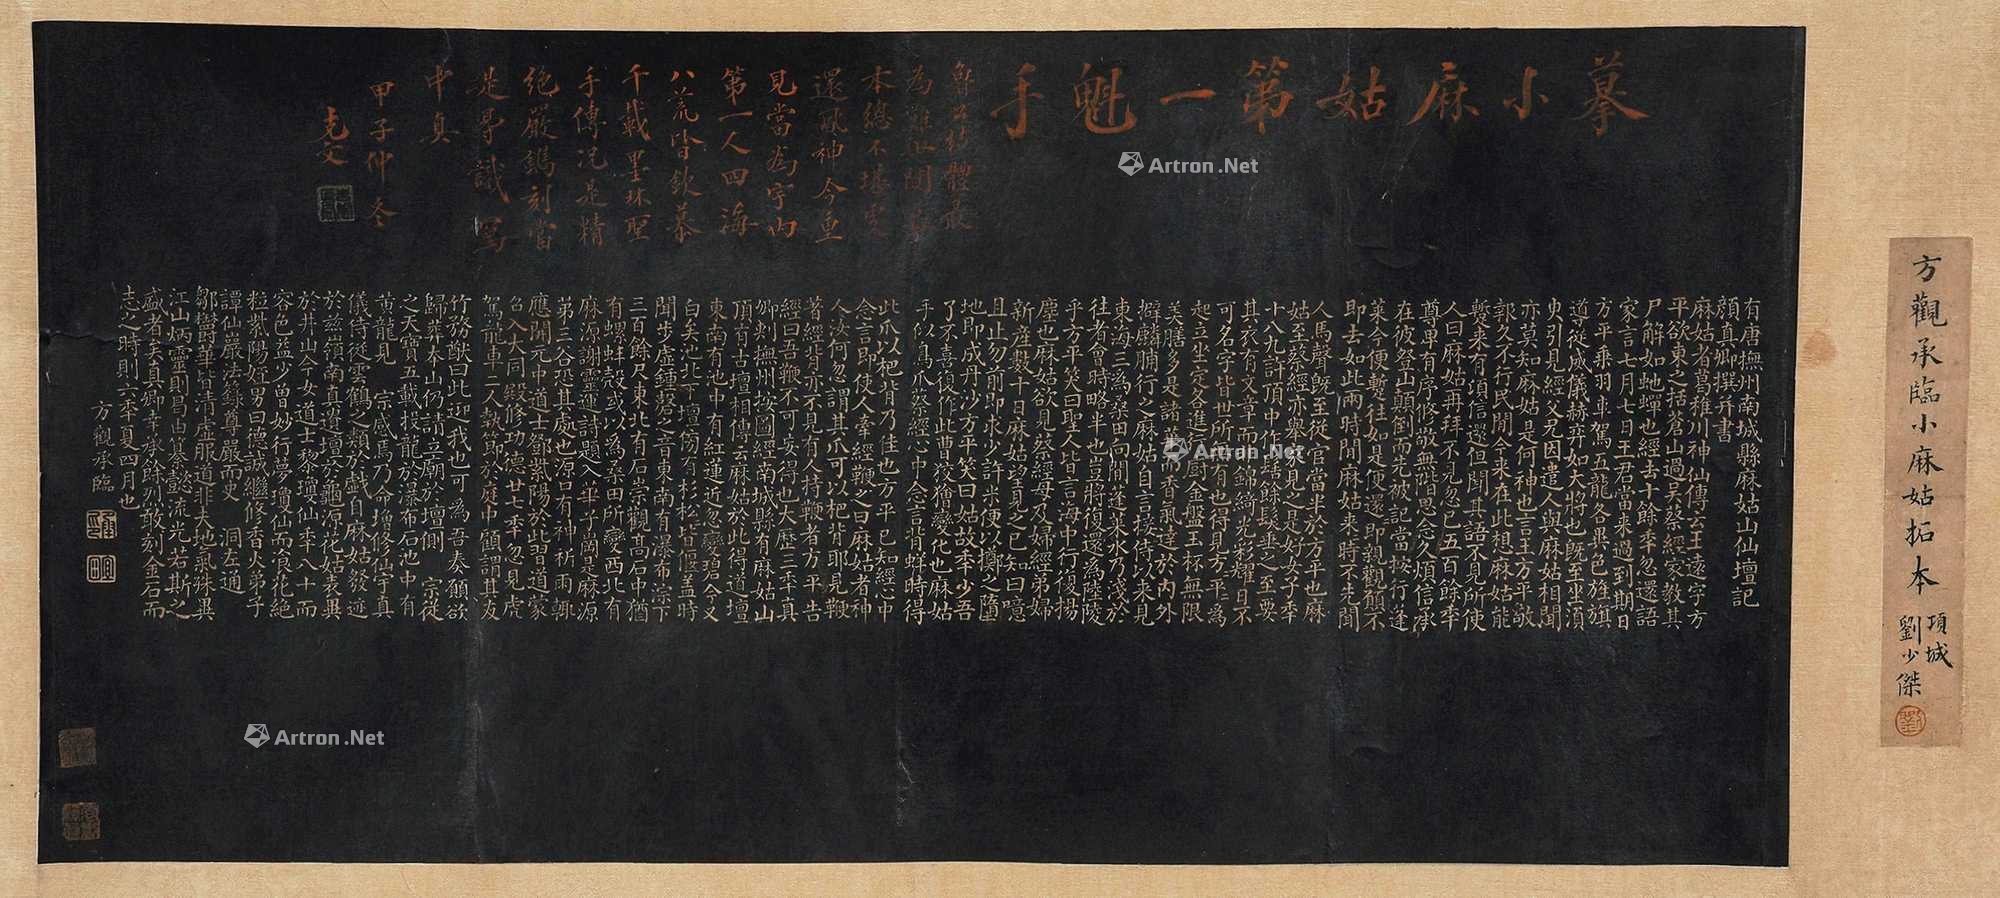 摹小麻姑第一魁手
魯公楷體最
為難
本總不堪
還風神今重
見當為宇內
第一人四海
八荒皆欽慕
千載墨珠聖
手傳況是精
絕嚴鐫刻當
是尋識寫
中真
甲子仲冬
克文
有唐撫州南城縣麻姑山仙壇記
顏真卿撰并書
麻姑者葛稚川神仙傳云王遠字方
平欲東之括蒼山過吳蔡經家教其
尸解如虵蟬也經去十餘年忽還語
家言七月七日王君當來過到期日
方平乘羽車駕五龍各異色旌旗
導從威儀赫弈如大將也既至坐須
臾引見經父兄因遣人與麻姑相聞
亦莫知麻姑是何神也言王方平敬
郭久不行民間今來在此想麻姑能
暫來有頃信還但聞其語不見所使
人曰麻姑再拜不見忽已五百餘年
尊卑有序修敬無階思念久煩信承
在彼登山顛倒而先被記當按行蓬
萊今便暫往如是便還即親觀願不
即去如此兩時間麻姑來時不先聞
人馬聲既至從官當半於方平也麻
姑至蔡經亦舉家見之是好女子年
十八九許頂中作髻餘髮垂之至要
其衣有文章而非錦綺光彩耀日不
可名字皆世所無有也得見方平為
起立坐定各進行厨金盤玉杯無限
美膳多是諸華而香氣達於內外
擗麟脯行之麻姑自言接侍以來見
東海三為桑田向間蓬萊水乃淺於
往者會時略半也豈將復還為陸陵
乎方平笑曰聖人皆言海中行復揚
塵也麻姑欲見蔡經母及婦經弟婦
新產數十日麻姑望見之已知曰噫
且止勿前即求少許米便以擲之墮
地即成丹沙方平笑曰姑故年少吾
了不喜復作此曹狡獪變化也麻姑
手似鳥爪蔡經心中念言背蛘時得
此爪以杷背乃佳也方平已知經心中
念言即使人牽經鞭之曰麻姑者神
人汝何忽謂其爪可以杷背耶見鞭
著經背亦不見有人持鞭者方平告
經曰吾鞭不可妄得也大歷三年真
卿刺撫州按圖經南城縣有麻姑山
頂有古壇相傳云麻姑於此得道壇
東南有池中有紅蓮近忽變碧今又
白矣池北下壇傍有杉松皆偃蓋時
聞步虛鍾磬之音東南有瀑布淙下
三百餘尺東北有石崇觀高石中猶
有螺蚌殼或以為桑田所變西北有
麻源謝靈運詩題入華子崗是麻源
第三谷恐其處也源口有神祈雨輒
應開元中道士鄧紫陽於此習道蒙
召入大同殿修功德廿七年忽見虎
駕龍車二人執節於庭中顧謂其友
竹務猷曰此迎我也可為吾奏願欲
歸葬本山仍請立廟於壇側 宗從
之天寶五載投龍於瀑布石池中有
黃龍見 宗感焉乃命增修仙宇真
儀侍從雲鶴之類於戲自麻姑發迹
於茲嶺南真遺壇於龜源花姑表異
於井山今女道士黎瓊仙年八十而
容色益少曾妙行夢瓊仙而餐花絕
粒紫陽姪男曰德誠繼修香火弟子
譚仙巖法籙尊嚴而史 洞左通
鄒鬱華皆清虛服道非夫地氣殊異
江山炳靈則曷由纂懿流光若斯之
盛者矣真卿幸承餘烈敢刻金石而
志之時則六年夏四月也
方觀承臨
方觀承臨小麻姑拓本
項城
劉少傑
Artron.Net
Artron.Net
Artron.Net